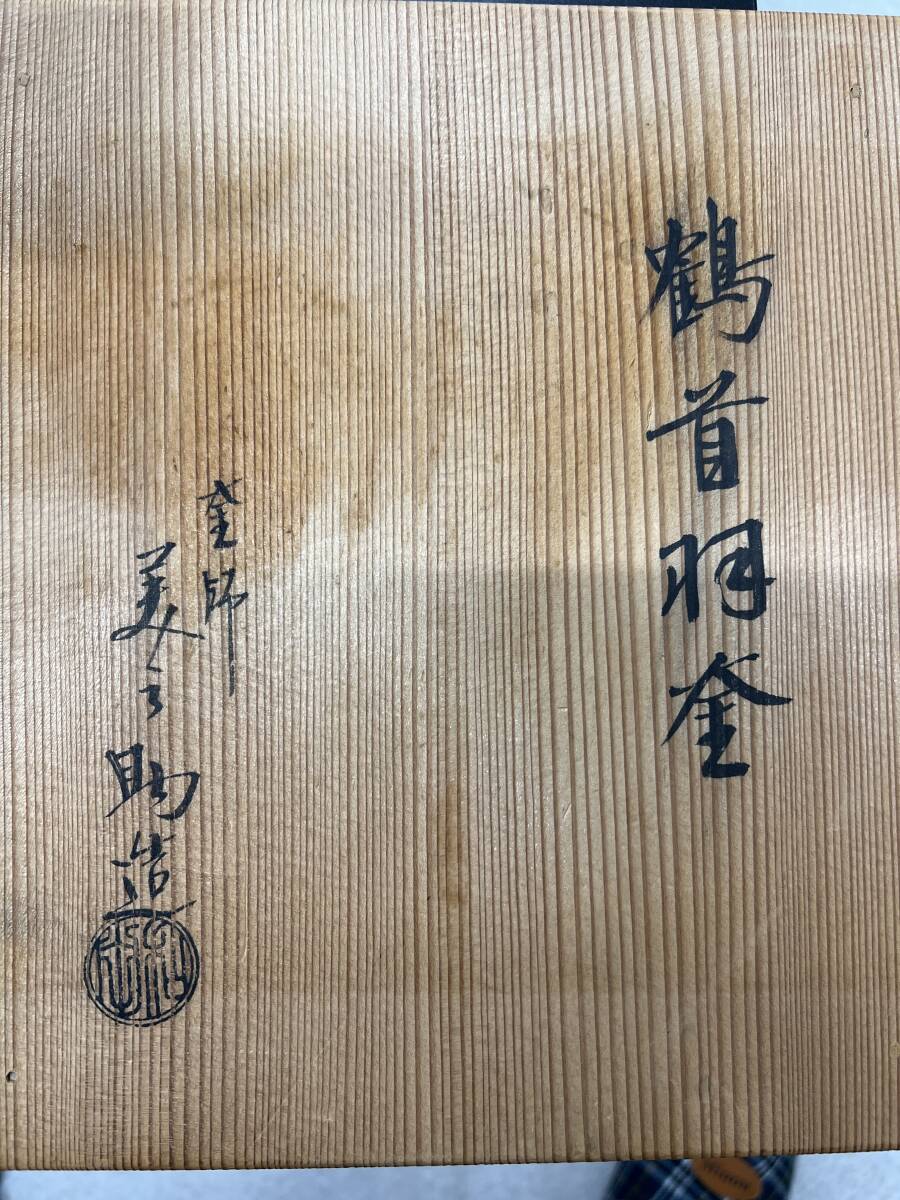 鶴首羽釜
釜師
美之助造